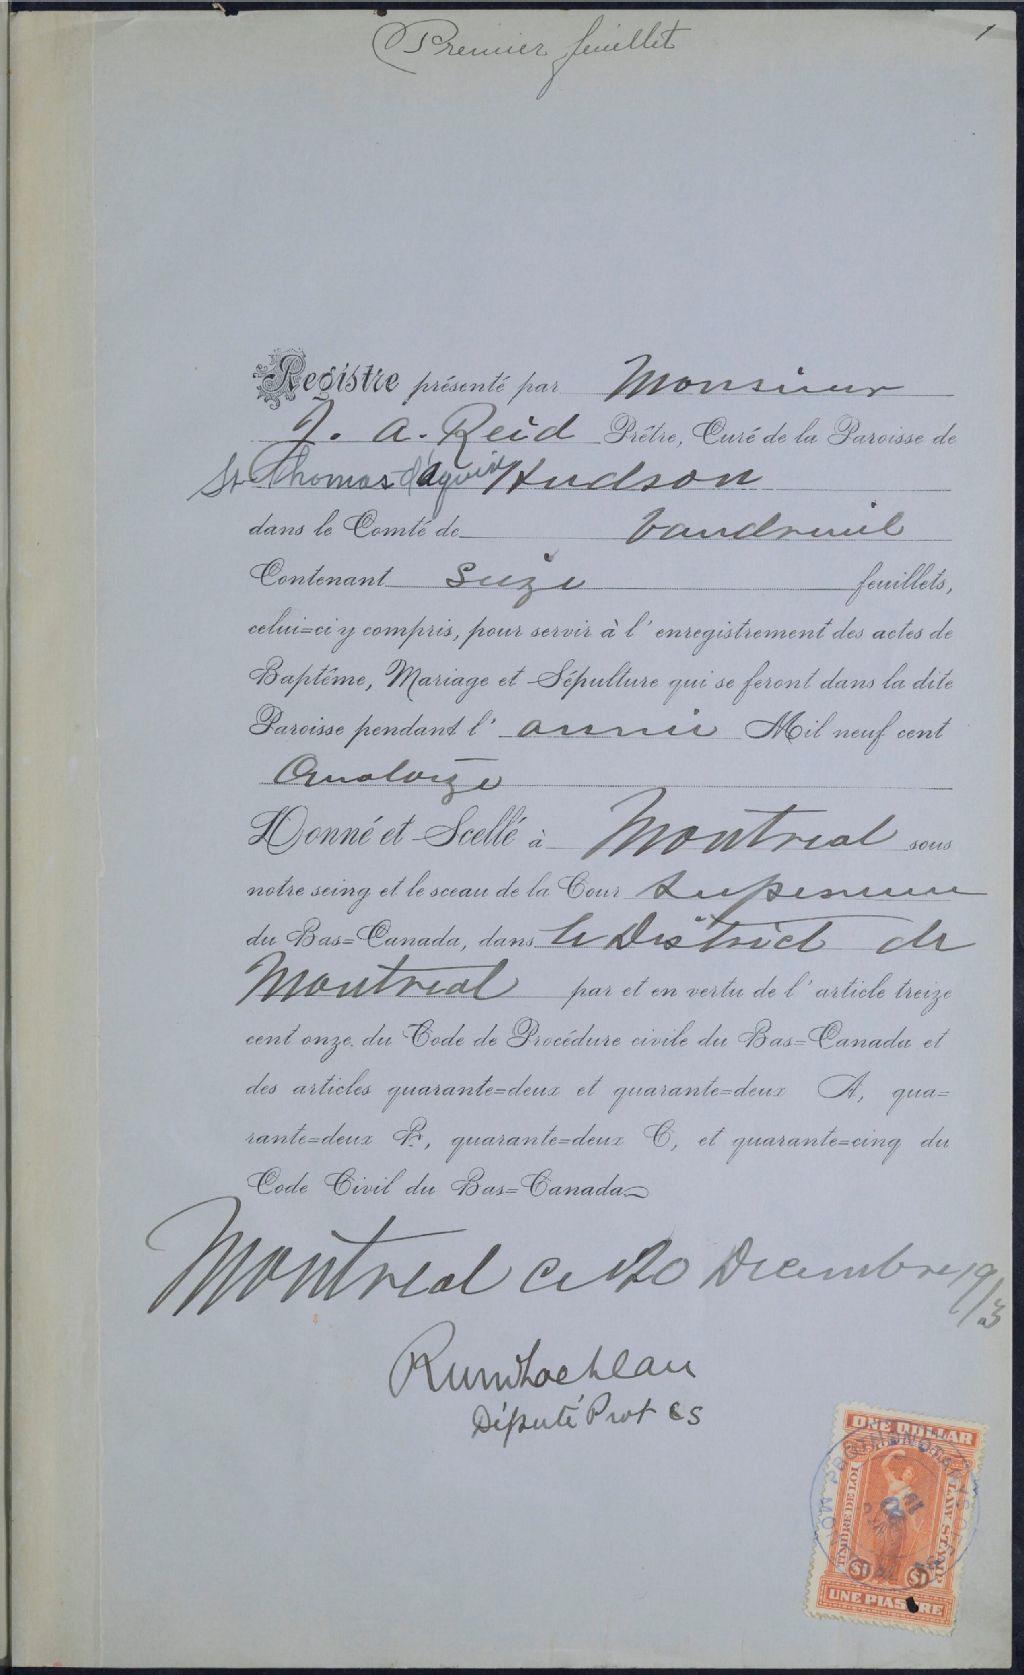 Premier feuillet
1
Registre présenté par Monsieur
J. A. Reid Prêtre, Curé de la Paroisse de
St Thomas d'Aquin Hudson
dans le Comté de Vaudreuil
Contenant Seize feuillets,
celui=ci y compris, pour servir à l'enregistrement des actes de
Baptême, Mariage et Sépulture qui se feront dans la dite
Paroisse pendant l'année Mil neuf cent
Quatorze
Donné et Scellé à Montreal sous
notre seing et le sceau de la Cour Superieure
du Bas=Canada, dans le District de
Montreal par et en vertu de l'article treize
cent onze du Code de Procédure civile du Bas=Canada et
des articles quarante=deux et quarante=deux A, qua=
rante=deux B, quarante=deux C, et quarante=cinq du
Code Civil du Bas=Canada
Montreal ce 20 Decembre 1913
Député Prot CS
ONE DOLLAR
TIMBRE DE LOI
LAW STAMP
$1 $1
UNE PIASTRE